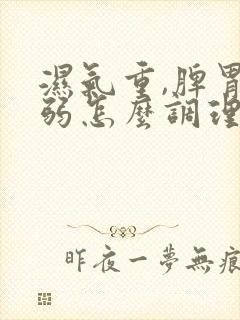 濕氣重,脾胃
弱怎麼調理
昨夜一夢無痕